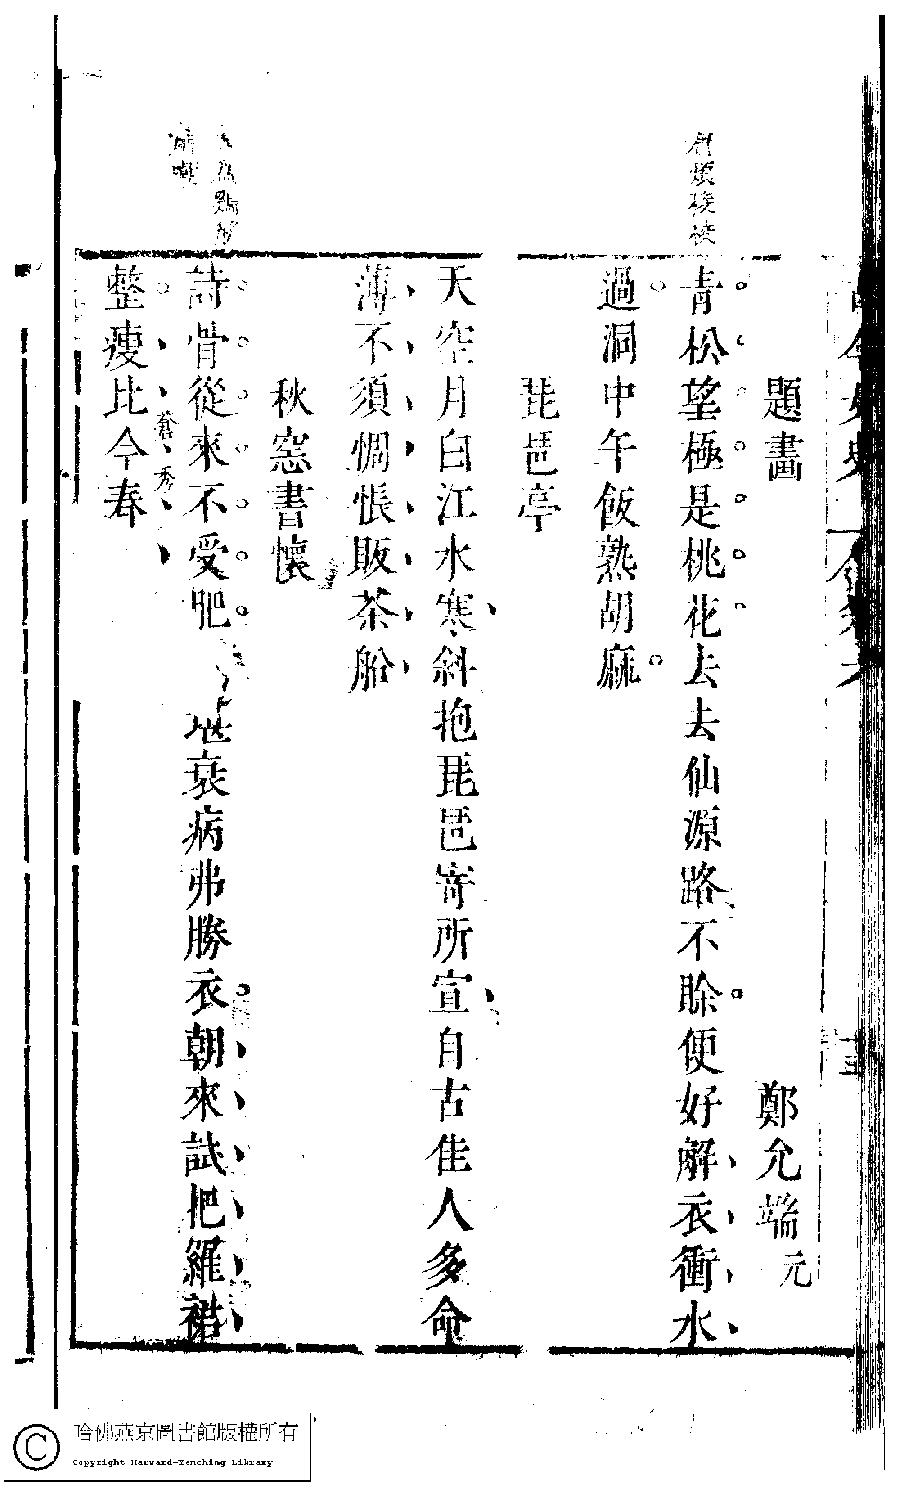 題畫
鄭允端元
青松望極是桃花去去仙源路不賒便好解衣衝水
過洞中午飯熟胡麻
琵琶亭
天空月白江水寒斜抱琵琶寄所宣自古佳人多命
薄不須惆悵販茶船
秋窓書懷
詩骨從來不受肥堪衰病弗勝衣朝來試把羅裙
整瘦比今春
蒼秀
哈佛燕京圖書館版權所有
Copyright Harvard-Yenching Library